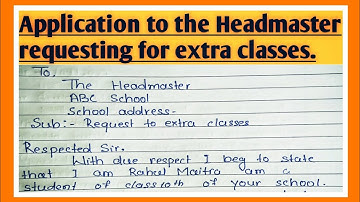 Application to the Headmaster
requesting for extra classes.
To,
The Headmaster
ABC School
School address-
Sub:- Request to extra classes
Respected Sir.
With due respect I beg to state
that I am Rahul Maitra am a
student of class 10th of your school.